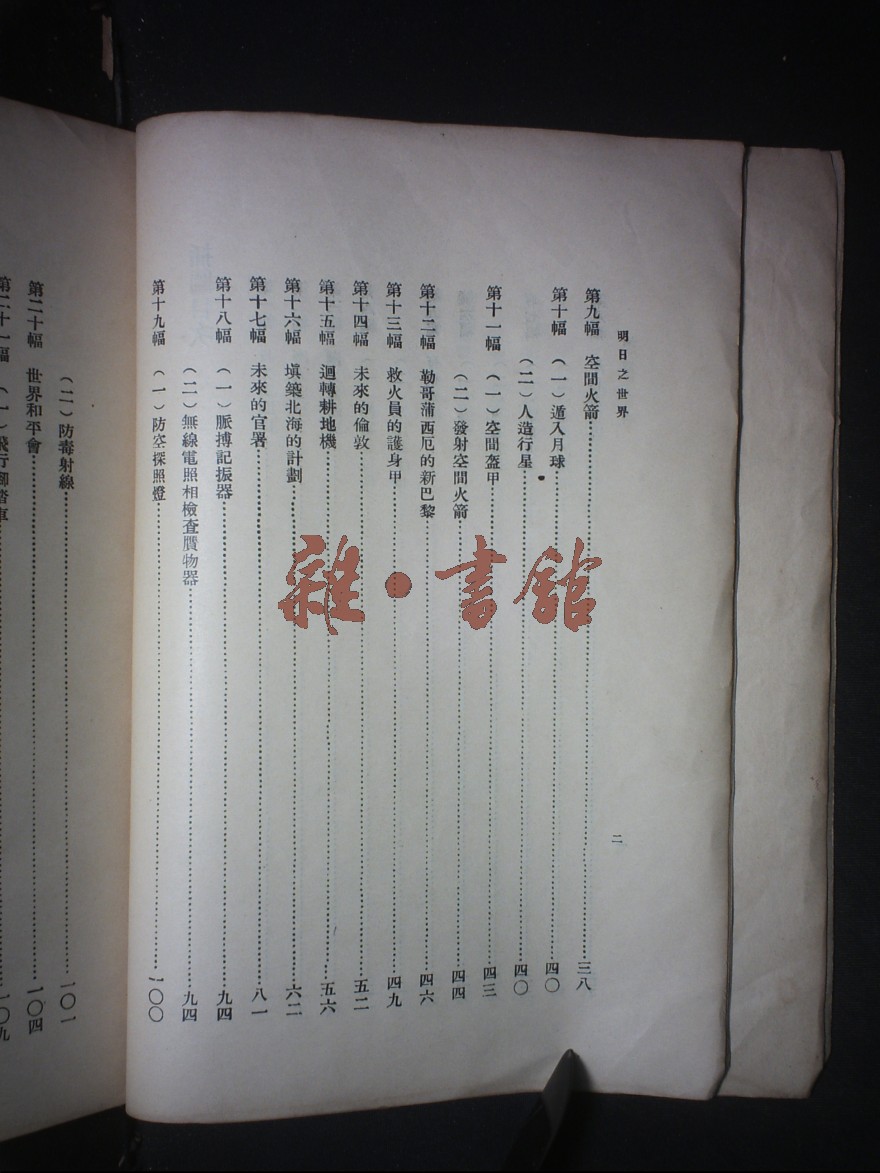 明日之世界
二
第九幅 空間火箭 三八
第十幅 (一)遁入月球 四〇
(二)人造行星 四〇
第十一幅 (一)空間盔甲 四三
(二)發射空間火箭 四四
第十二幅 勒哥蒲西厄的新巴黎 四六
第十三幅 救火員的護身甲 四九
第十四幅 未來的倫敦 五二
第十五幅 迴轉耕地機 五六
第十六幅 填築北海的計劃 六二
第十七幅 未來的官署 八一
第十八幅 (一)脈搏記振器 九四
(二)無線電照相檢查贋物器 九四
第十九幅 (一)防空探照燈 一〇〇
(二)防毒射線 一〇一
第二十幅 世界和平會 一〇四
第二十一幅 (一)飛行腳踏車 一〇九
雜·書館